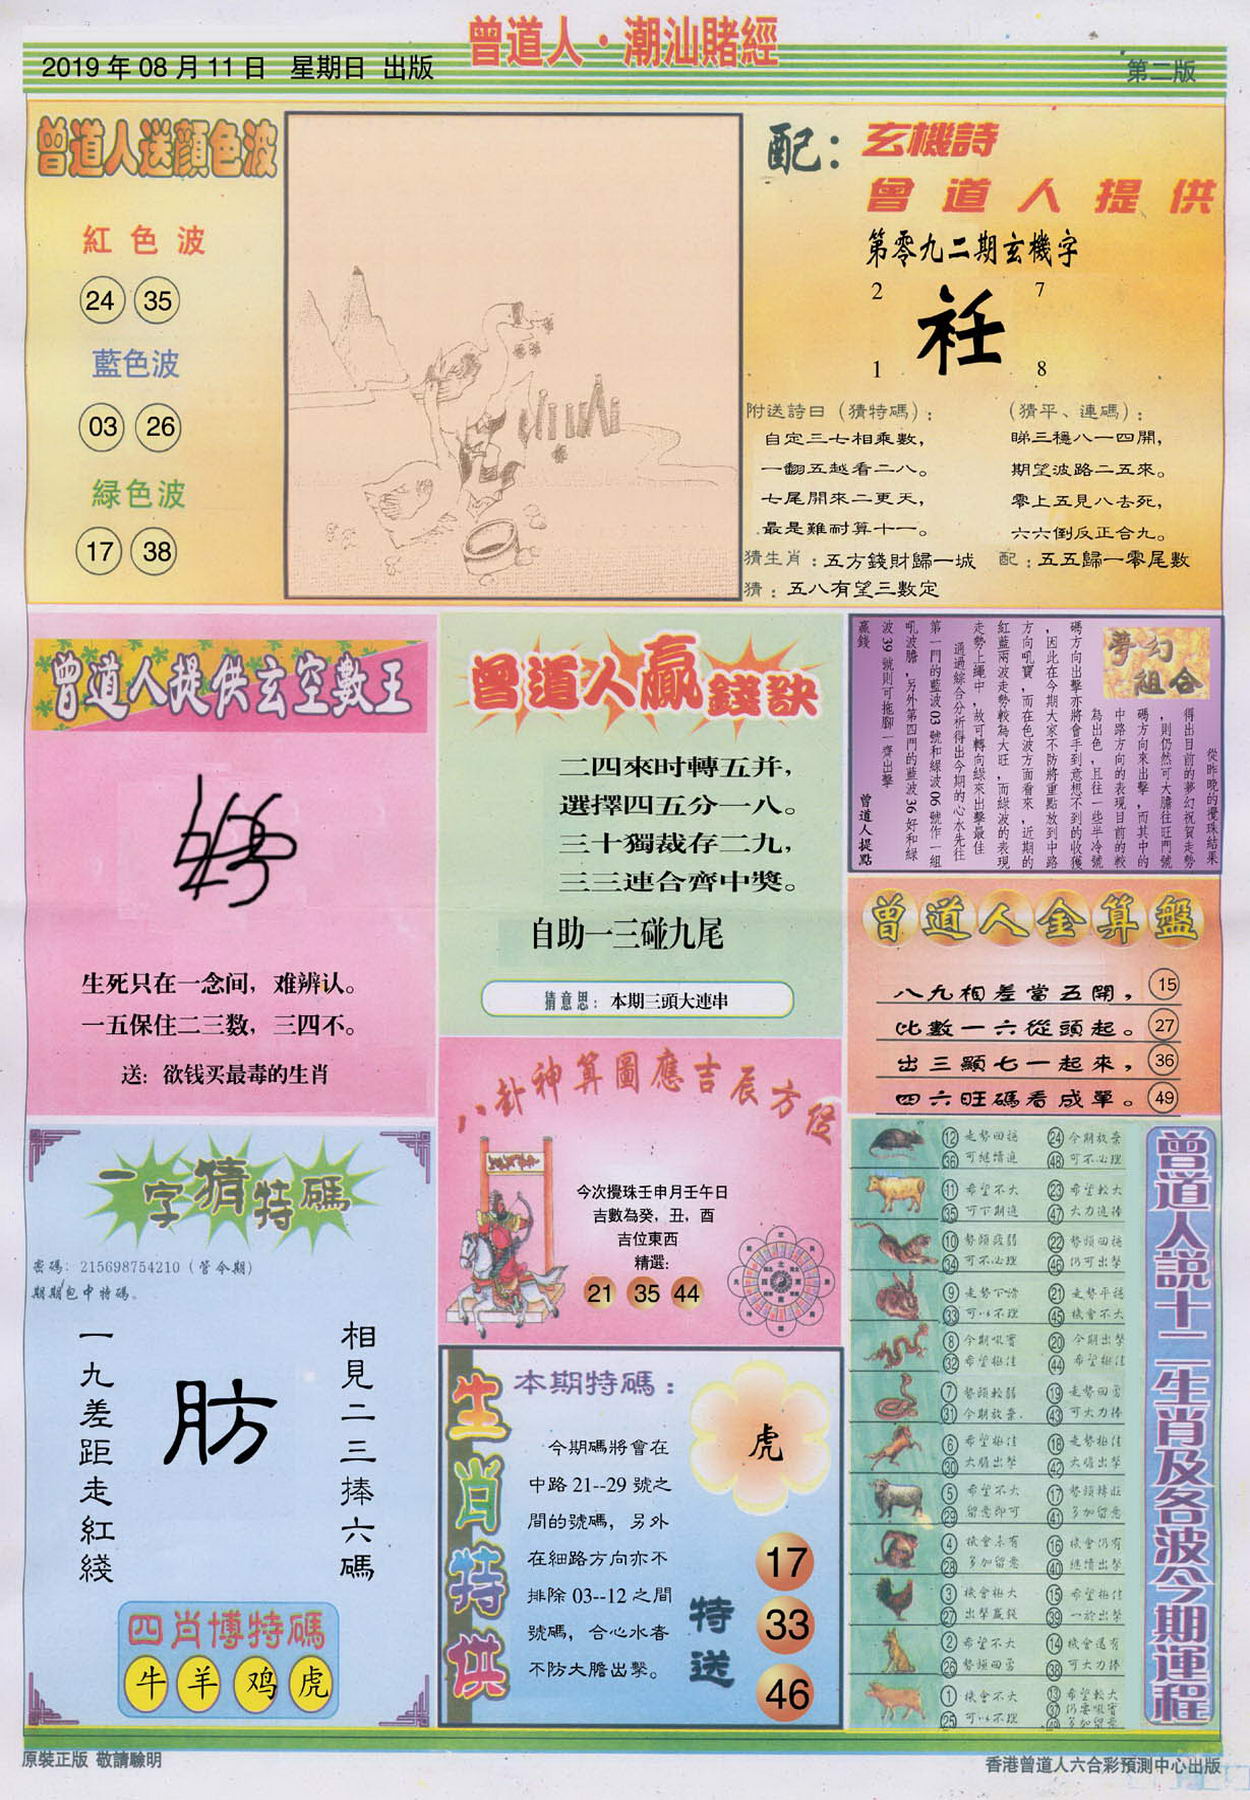 曾道人·潮汕賭經
2019年08月11日 星期日 出版
第二版
曾道人送顔色波
紅色波
24 35
藍色波
03 26
緑色波
17 38
配：玄機詩
曾道人提供
第零九二期玄機字
2 7
衽
1 8
附送詩曰（猜特碼）：
自定三七相乘數，
一翻五越看二八。
七尾開來二更天，
最是難耐算十一。
（猜平、連碼）：
睇三穩八一四開，
期望波路二五來。
零上五見八去死，
六六倒反正合九。
猜生肖：五方錢財歸一城 配：五五歸一零尾數
猜：五八有望三數定
曾道人提供玄空數王
生死只在一念间，难辨认。
一五保住二三数，三四不。
送：欲钱买最毒的生肖
曾道人贏錢訣
二四來时轉五并，
選擇四五分一八。
三十獨裁存二九，
三三連合齊中獎。
自助一三碰九尾
猜意思：本期三頭大連串
夢幻組合
從昨晚的攪珠結果
得出目前的夢幻祝賀走勢
，則仍然可大膽往旺門號
碼方向來出擊，而其中的
中路方向的表現目前的較
為出色，且往一些半冷號
碼方向出擊亦將會手到意想不到的收獲
，因此在今期大家不防將重點放到中路
方向吼寶，而在色波方面看來，近期的
紅藍兩波走勢較為大旺，而綠波的表現
走勢上繩中，故可轉向綠來出擊最佳
通過綜合分析得出今期的心水先往
第一門的藍波03號和綠波06號作一組
吼波膽，另外第四門的藍波36好和綠
波39號則可拖腳一齊出擊
贏錢
曾道人提點
曾道人金算盤
八九相差當五開， 15
比數一六從頭起。 27
出三顯七一起來， 36
四六旺碼看成單。 49
八卦神算圖應吉辰方位
今次攪珠壬申月壬午日
吉數為癸，丑，酉
吉位東西
精選：
21 35 44
一字猜特碼
密碼：215698754210（管今期）
期期包中特碼。
相見二三捧六碼
肪
一九差距走紅綫
四肖博特碼
牛 羊 鸡 虎
生肖特供
本期特碼：
虎
今期碼將會在
中路21--29號之
間的號碼，另外
在細路方向亦不
排除03--12之間
號碼，合心水者
不防大膽出擊。
特送
17
33
46
曾道人説十二生肖及各波今期運程
12 走勢回穩 24 今期放棄
36 可繼續追 48 可不必理
11 希望不大 23 希望較大
35 可下期追 47 大力追捧
10 勢頭疲弱 22 勢頭回穩
34 可不必理 46 仍可出擊
9 走勢下滑 21 走勢平穩
33 可以不理 45 機會不大
8 今期吼寶 20 今期出擊
32 希望極佳 44 希望極佳
7 勢頭較弱 19 走勢回勇
31 今期放棄. 43 可大力捧
6 希望極佳 18 走勢極佳
30 大膽出擊 42 大膽出擊
5 希望不大 17
29 留意即可 41 多加留意
4 機會未有 16 機會仍有
28 多加留意 40 繼續出擊
3 機會極大 15 希望極佳
27 出擊贏錢 39 一於出擊
2 希望不大 14 機會還有
26 勢頭回雷 38 可大力捧
1 機會不大 13 希望較大
25 可以不理 37 仍要吼寶
49 多加留意
原裝正版 敬請驗明
香港曾道人六合彩預測中心出版